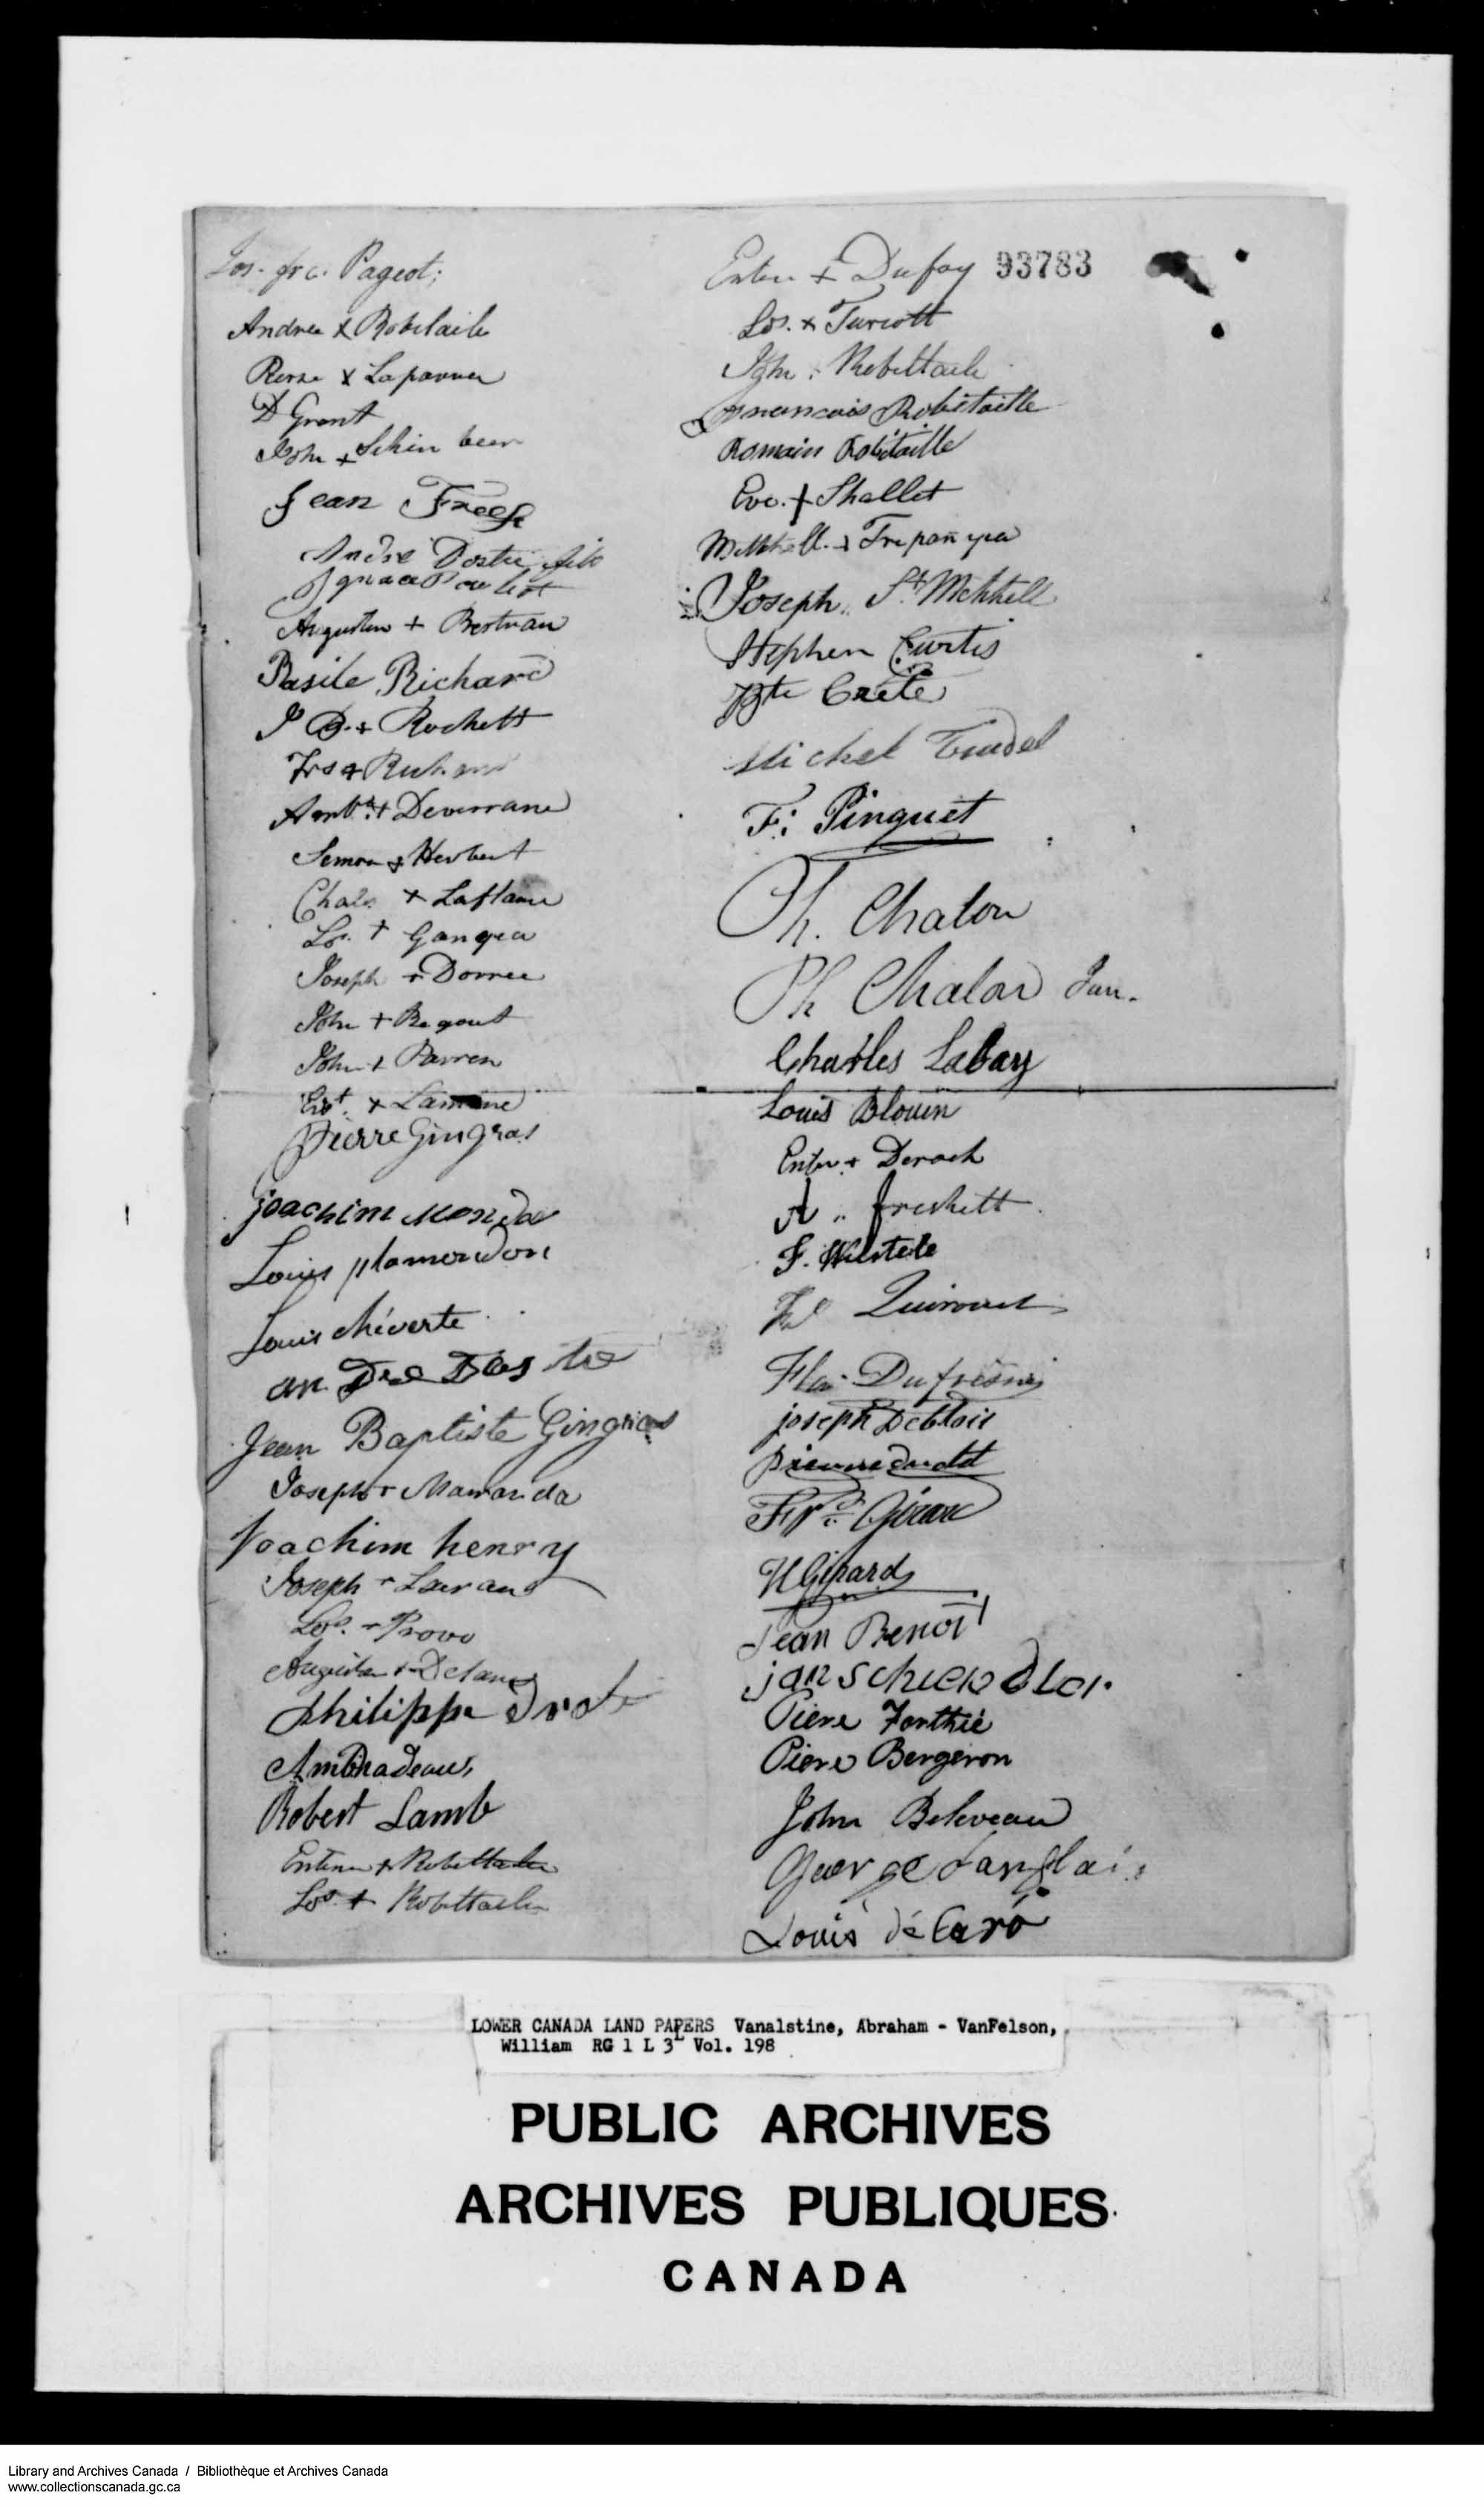 Jos. frs. Pageot;
Andrea x Robitaile
Pierre x Lapannea
D Grant
John + Schin been
Jean Freeh
André Dostie fils
Ignace Pouliot
Augusten + Bertran
Basile Richard
J B. + Rochett
Frs + Richard
Ambs. + Deverrane
Semon + Herbert
Chals + Laflame
Los. + Gangra
Joseph + Dorree
John + Begout
John + Parren
Est. x Lamine
Pierre Gingras
joachim
Louis plamondon
Louis chéverte
an Dre Dos tie
Jean Baptiste Gingras
Joseph + Mamanda
Joachim henry
Joseph + Lauran
Los. + Provo
Augusten + Delane
Philippe Drole
Amb nadeau,
Robert Lamb
Entinn + Robettaile
Los. + Robettaile
Enten + Dufay 93783
Los. x Turcott
John + Robettaile
francois Robitaille
Romain Robitaille
Eve. + Shallet
Mitchell. + Trepanyea
Joseph St. Mitchell
Stephen Curtis
Bte Crete
Michel Trudel
F: Pinguet
Th. Chalou
Ph Chalou Jun.
Charles Labay
Louis Blouin
Enten + Deroch
A. freshett
F. Wustele
Fd Quirouet
Flav Dufresne
joseph Deblois
Pierre audet
Frs. Girard
H Girard
Jean Benoit
jan schiendler.
Piere Forthié
Piere Bergeron
John Beleveau
George Langlais
Louis dé Caró
LOWER CANADA LAND PAPERS Vanalstine, Abraham - VanFelson,
William RG 1 L 3L Vol. 198
PUBLIC ARCHIVES
ARCHIVES PUBLIQUES
CANADA
Library and Archives Canada / Bibliothèque et Archives Canada
www.collectionscanada.gc.ca